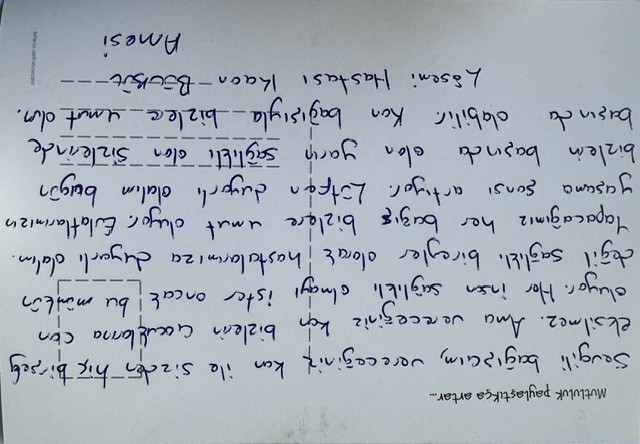 Mutluluk paylaştıkça artar...
Sevgili bağışcım, vereceğiniz kan ile sizden hiç birşey
eksilmez. Ama vereceğiniz kan bizlerin çocuklarına can
oluyor. Her insan sağlıklı olmayı ister ancak bu mümkün
değil sağlıklı bireyler olarak hastalarımıza duyarlı olalım.
Yapacağınız her bağış bizlere umut oluyor. Evlatlarımızın
yaşama şansı artıyor. Lütfen duyarlı olalım bugün
bizlerin başında olan yarın sağlıklı olan sizlerinde
başında olabilir. Kan bağışıyla bizlere umut olun.
Lösemi Hastası Kaan
Annesi